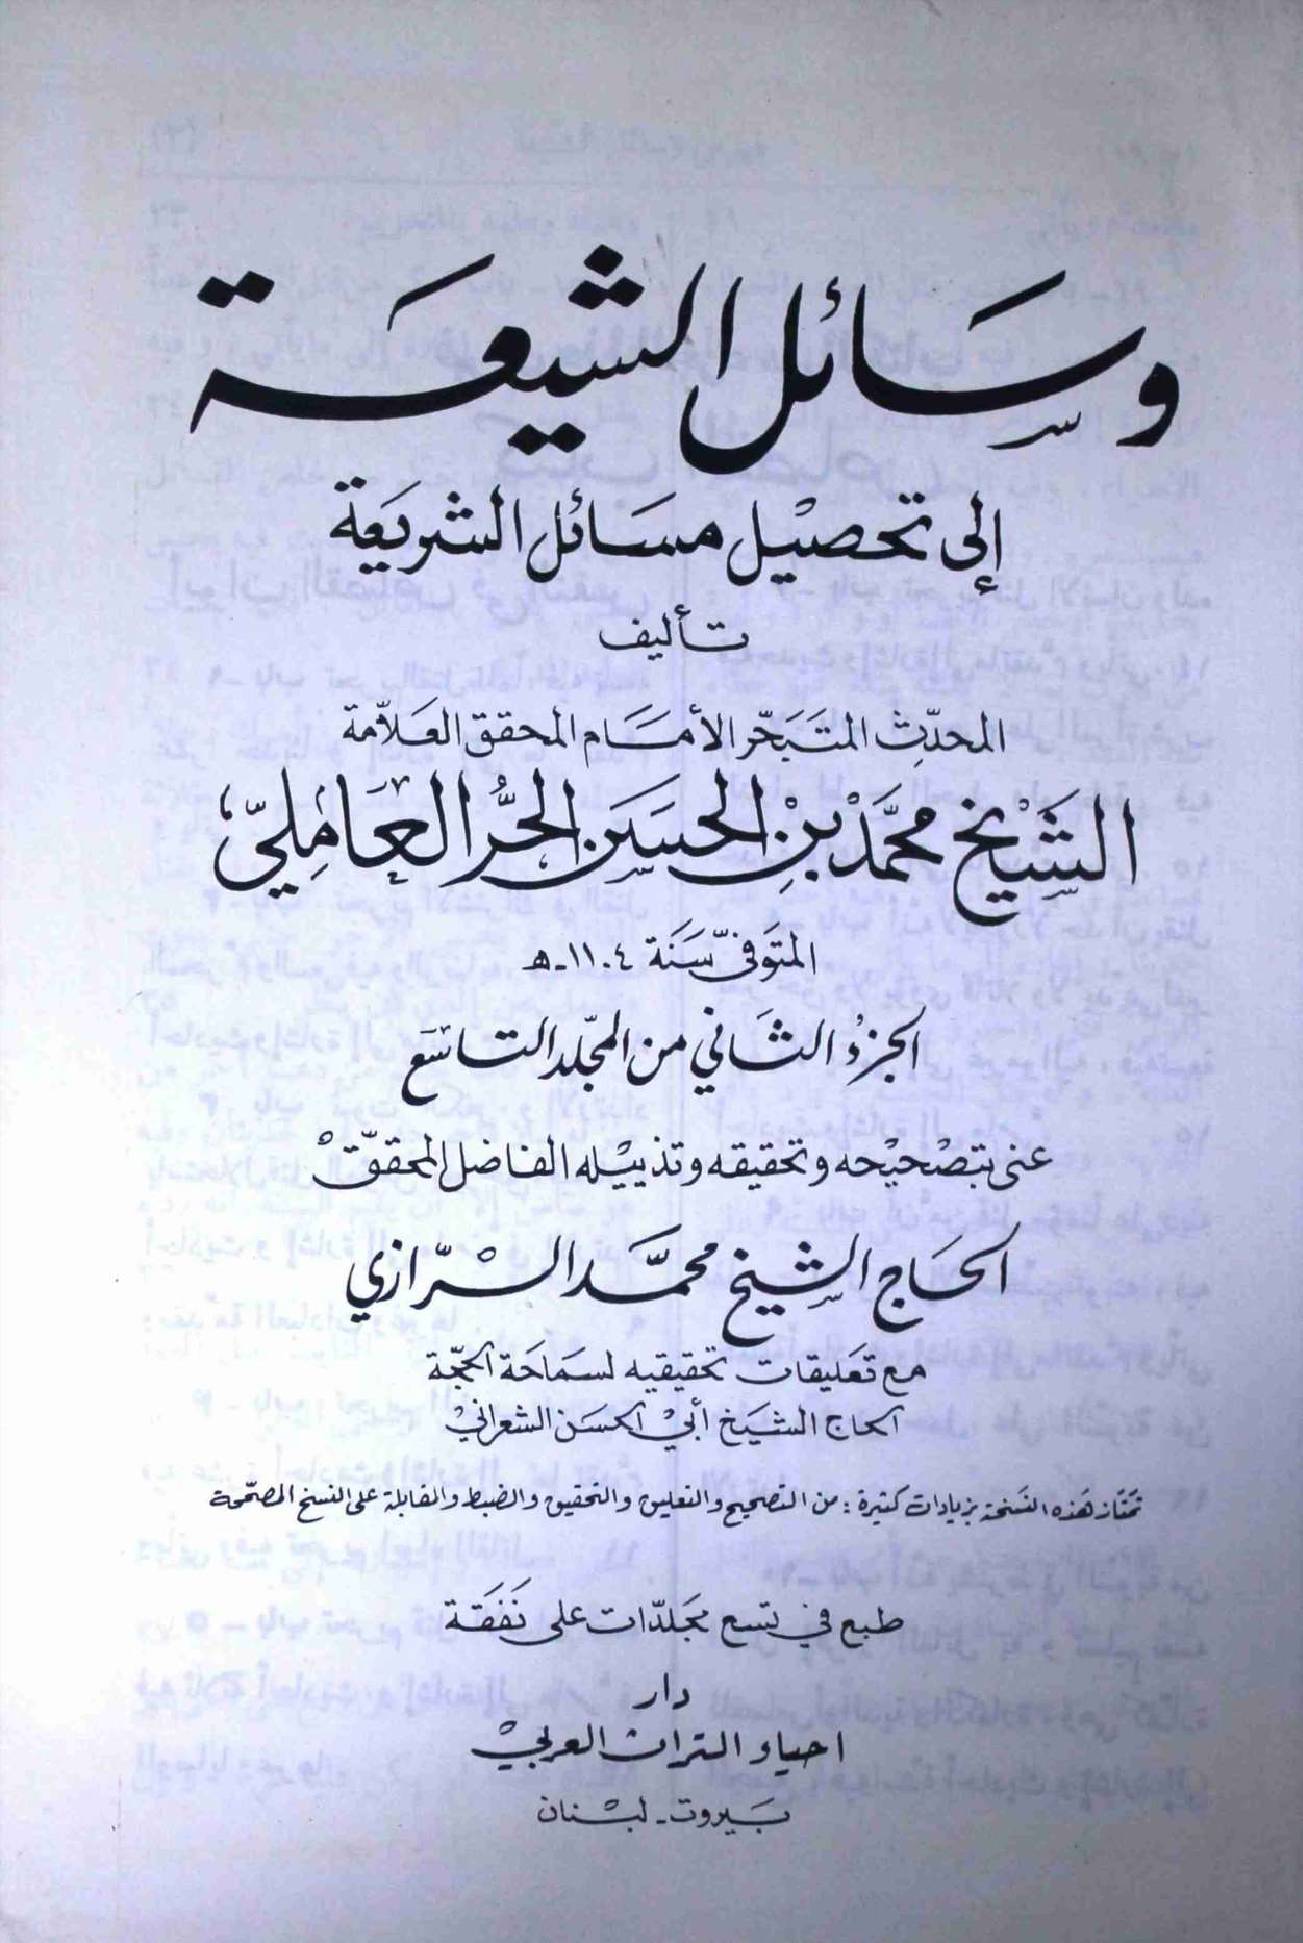 وسائل الشيعة
إلى تحصيل مسائل الشريعة
تأليف
المحدّث المتبحّر الأمام المحقق العلاّمة
الشّيْخ محمَّد بْنِ الحسَن الحُرّ العَامِليّ؛
المتوفّى سَنَة ١١٠٤ هـ
الجزءُ الثَّاني من المجلّد التاسَع
عنى بتصْحيْحه وتحقيقه وتذييْله الفاضل المحقّق
الحَاج الشيخ محمَّد الرّازي
مع تعَليقات تحقيقيه لسمَاحَة الحجّة
الحاج الشيَخ أبيْ الحسَن الشعرانيْ
تمتاز هَذه النسَخة بزيادات كثيرة : من التصحيح والتعليق والتحقيق والضبط والمقابلة على النسخ المصحّحة
طبع في تسع مجلدّات على نَفَقَة
دار
احياء التراث العربيْ
بَيروت - لبْنان